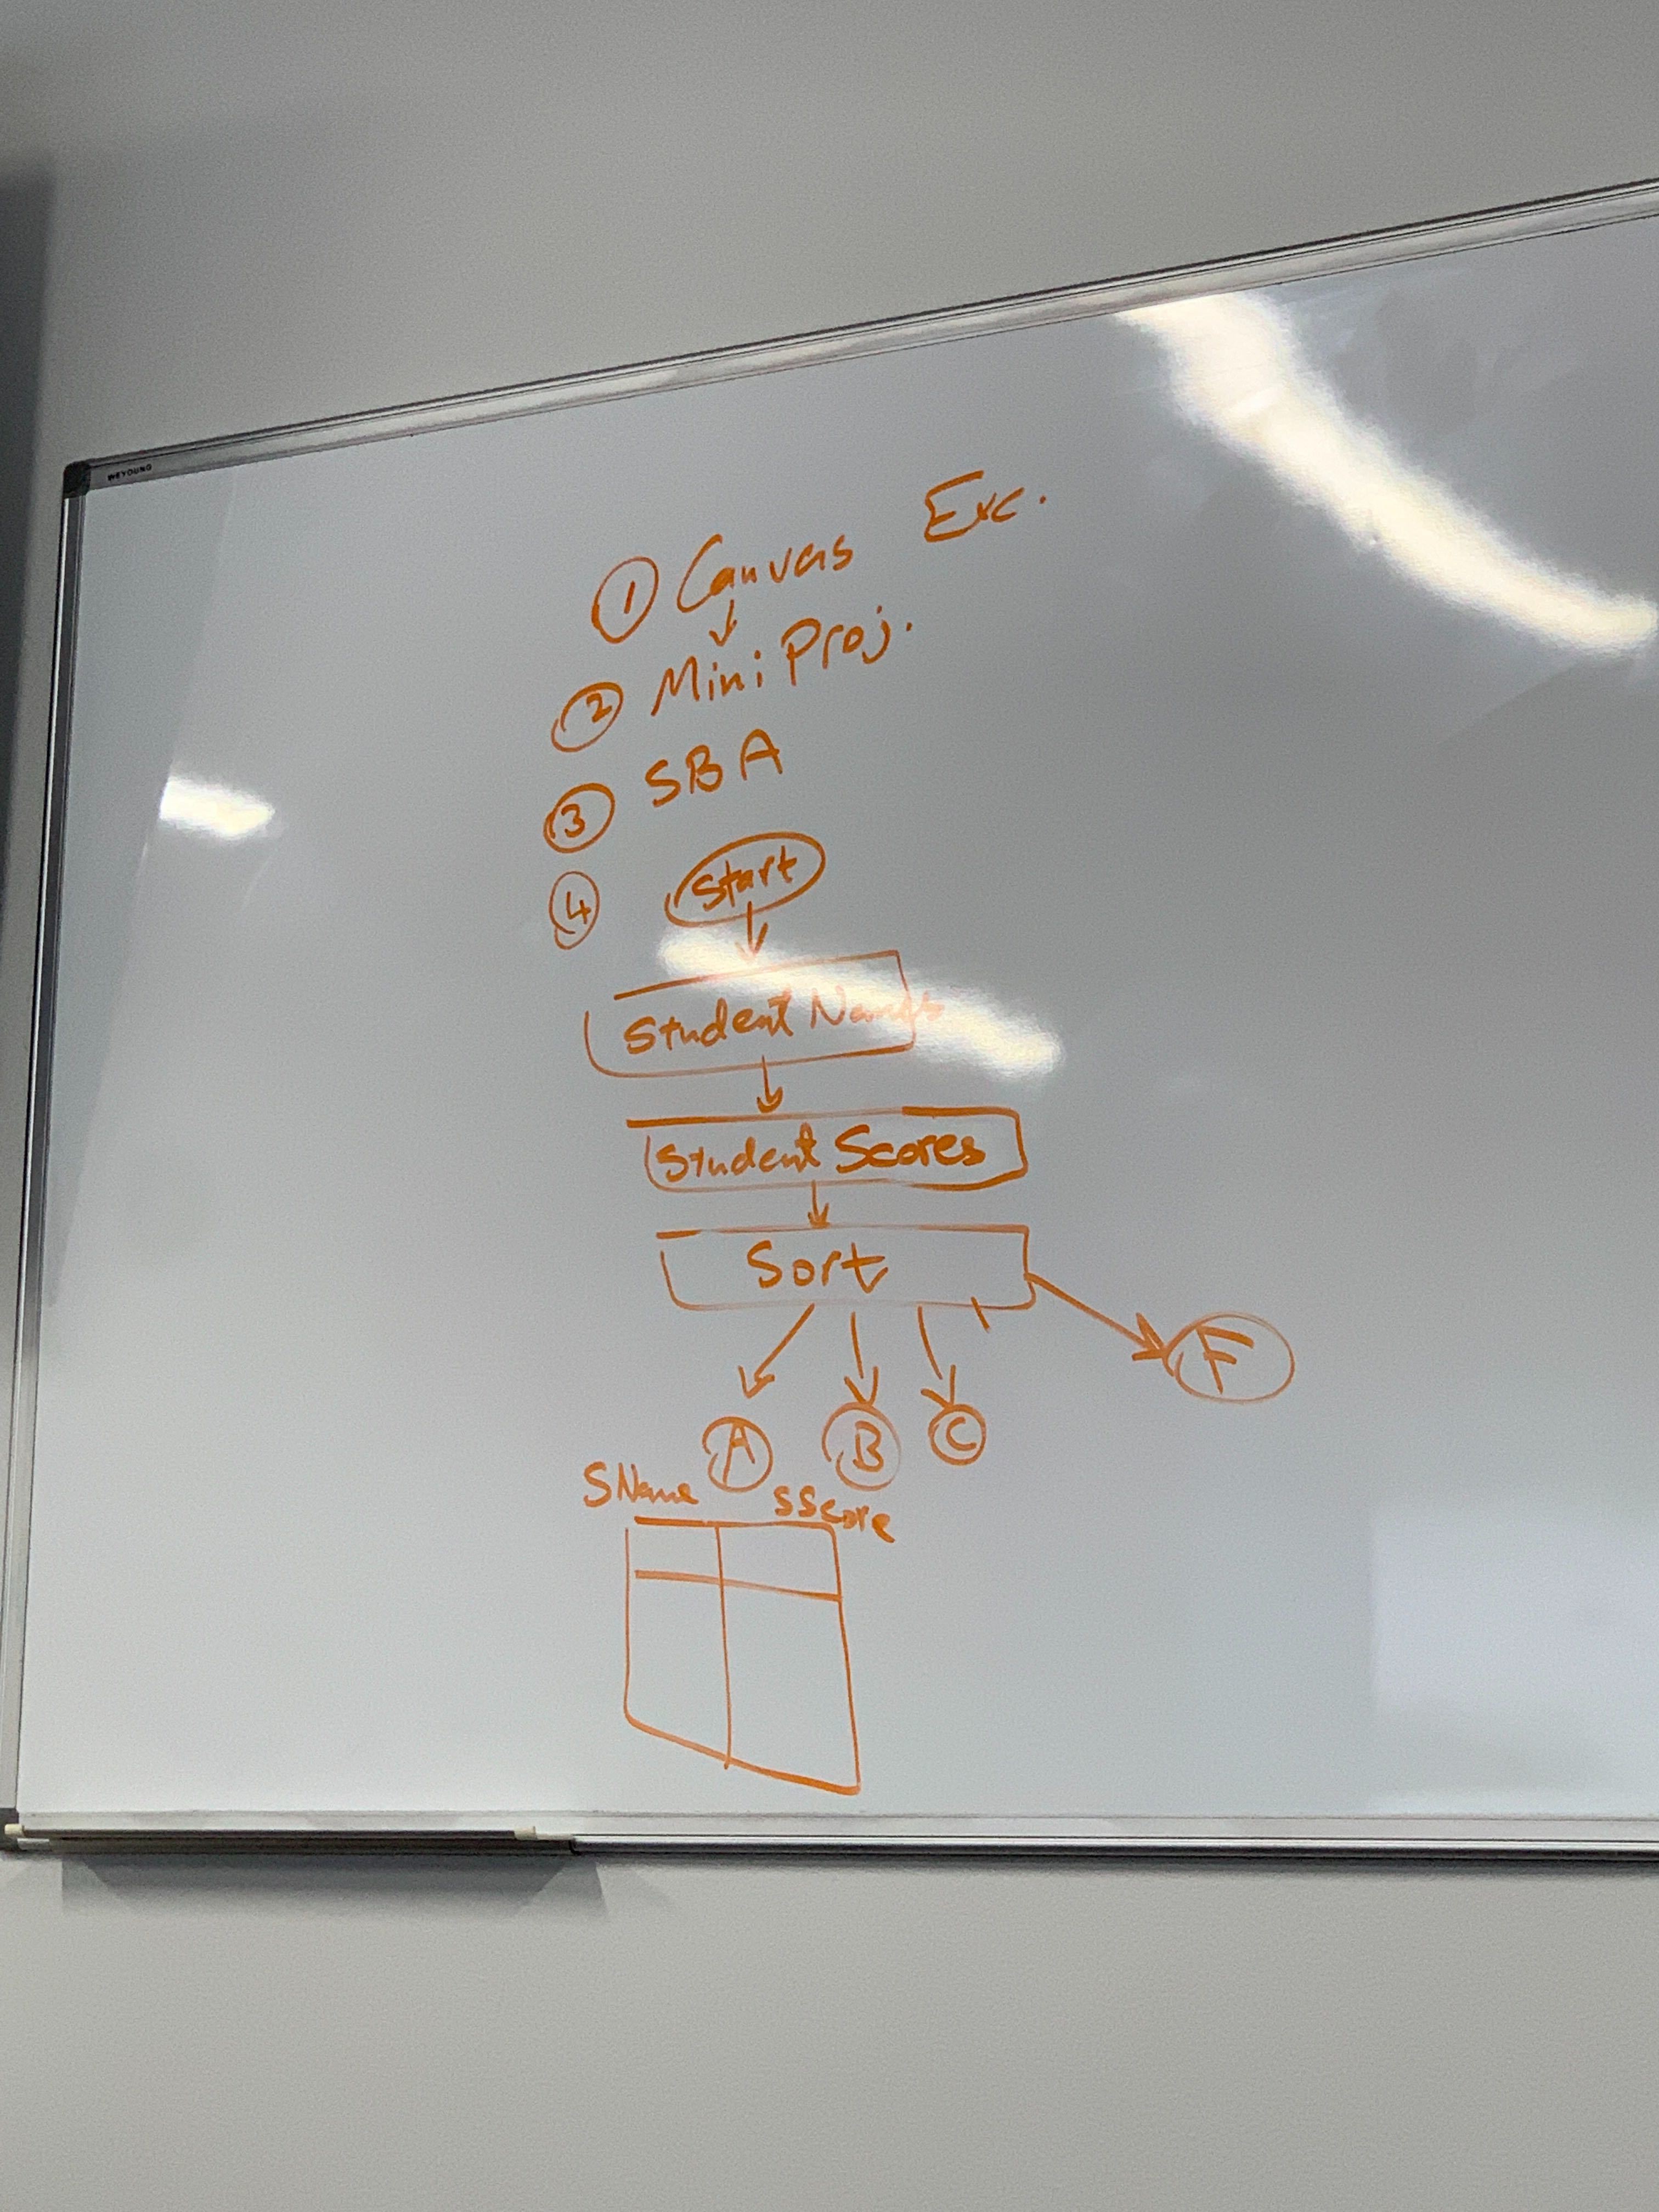 WEYOUNG
① Canvas Exc.
② Mini Proj.
③ SBA
④ Start
Student Names
Student Scores
Sort
F
A B C
SName SScore